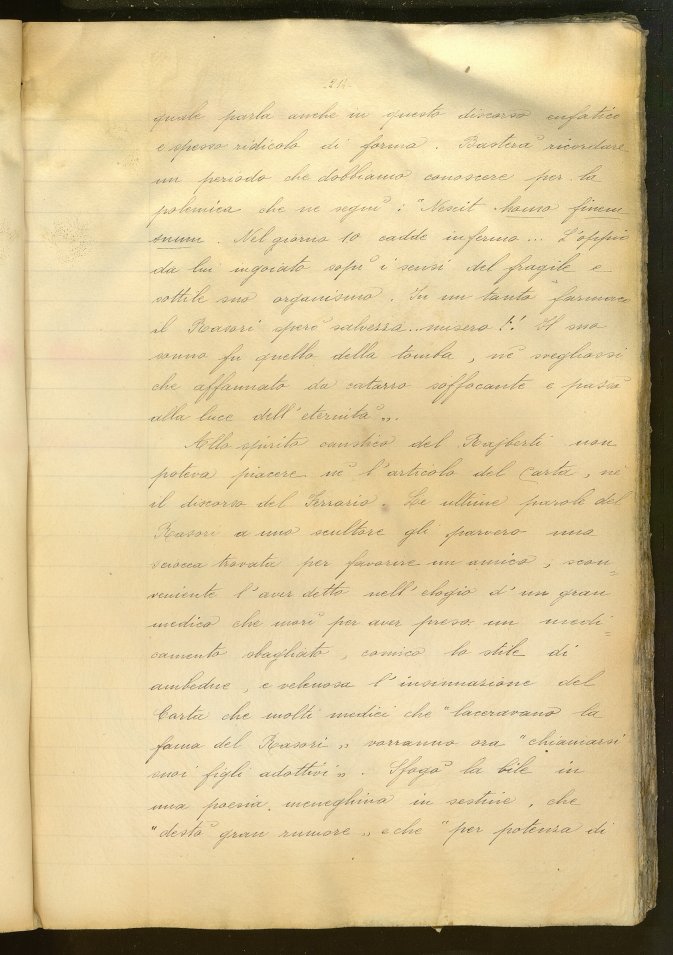 214
quale parla anche in questo discorso enfatico
e spesso ridicolo di forma. Basterà ricordare
un periodo che dobbiamo conoscere per la
polemica che ne seguì: "Nescit homo finem
suum. Nel giorno 10 cadde infermo... L'oppio
da lui ingoiato sopì i sensi del fragile e
sottile suo organismo. In un tanto farmaco
il Rasori sperò salvezza... misero!! Il suo
sonno fu quello della tomba, nè svegliossi
che affannato da catarro soffocante e passò
alla luce dell'eternità".
Allo spirito caustico del Rajberti non
poteva piacere nè l'articolo del Carta, nè
il discorso del Ferrario. Le ultime parole del
Rasori a uno scultore gli parvero una
sciocca trovata per favorire un amico, scon-
veniente l'aver detto nell'elogio d'un gran
medico che morì per aver preso un medi-
camento sbagliato, comico lo stile di
ambedue, e velenosa l'insinuazione del
Carta che molti medici che "laceravano la
fama del Rasori" vorranno ora "chiamarsi
suoi figli adottivi". Sfogò la bile in
una poesia meneghina in sestine, che
"destò gran rumore" e che "per potenza di